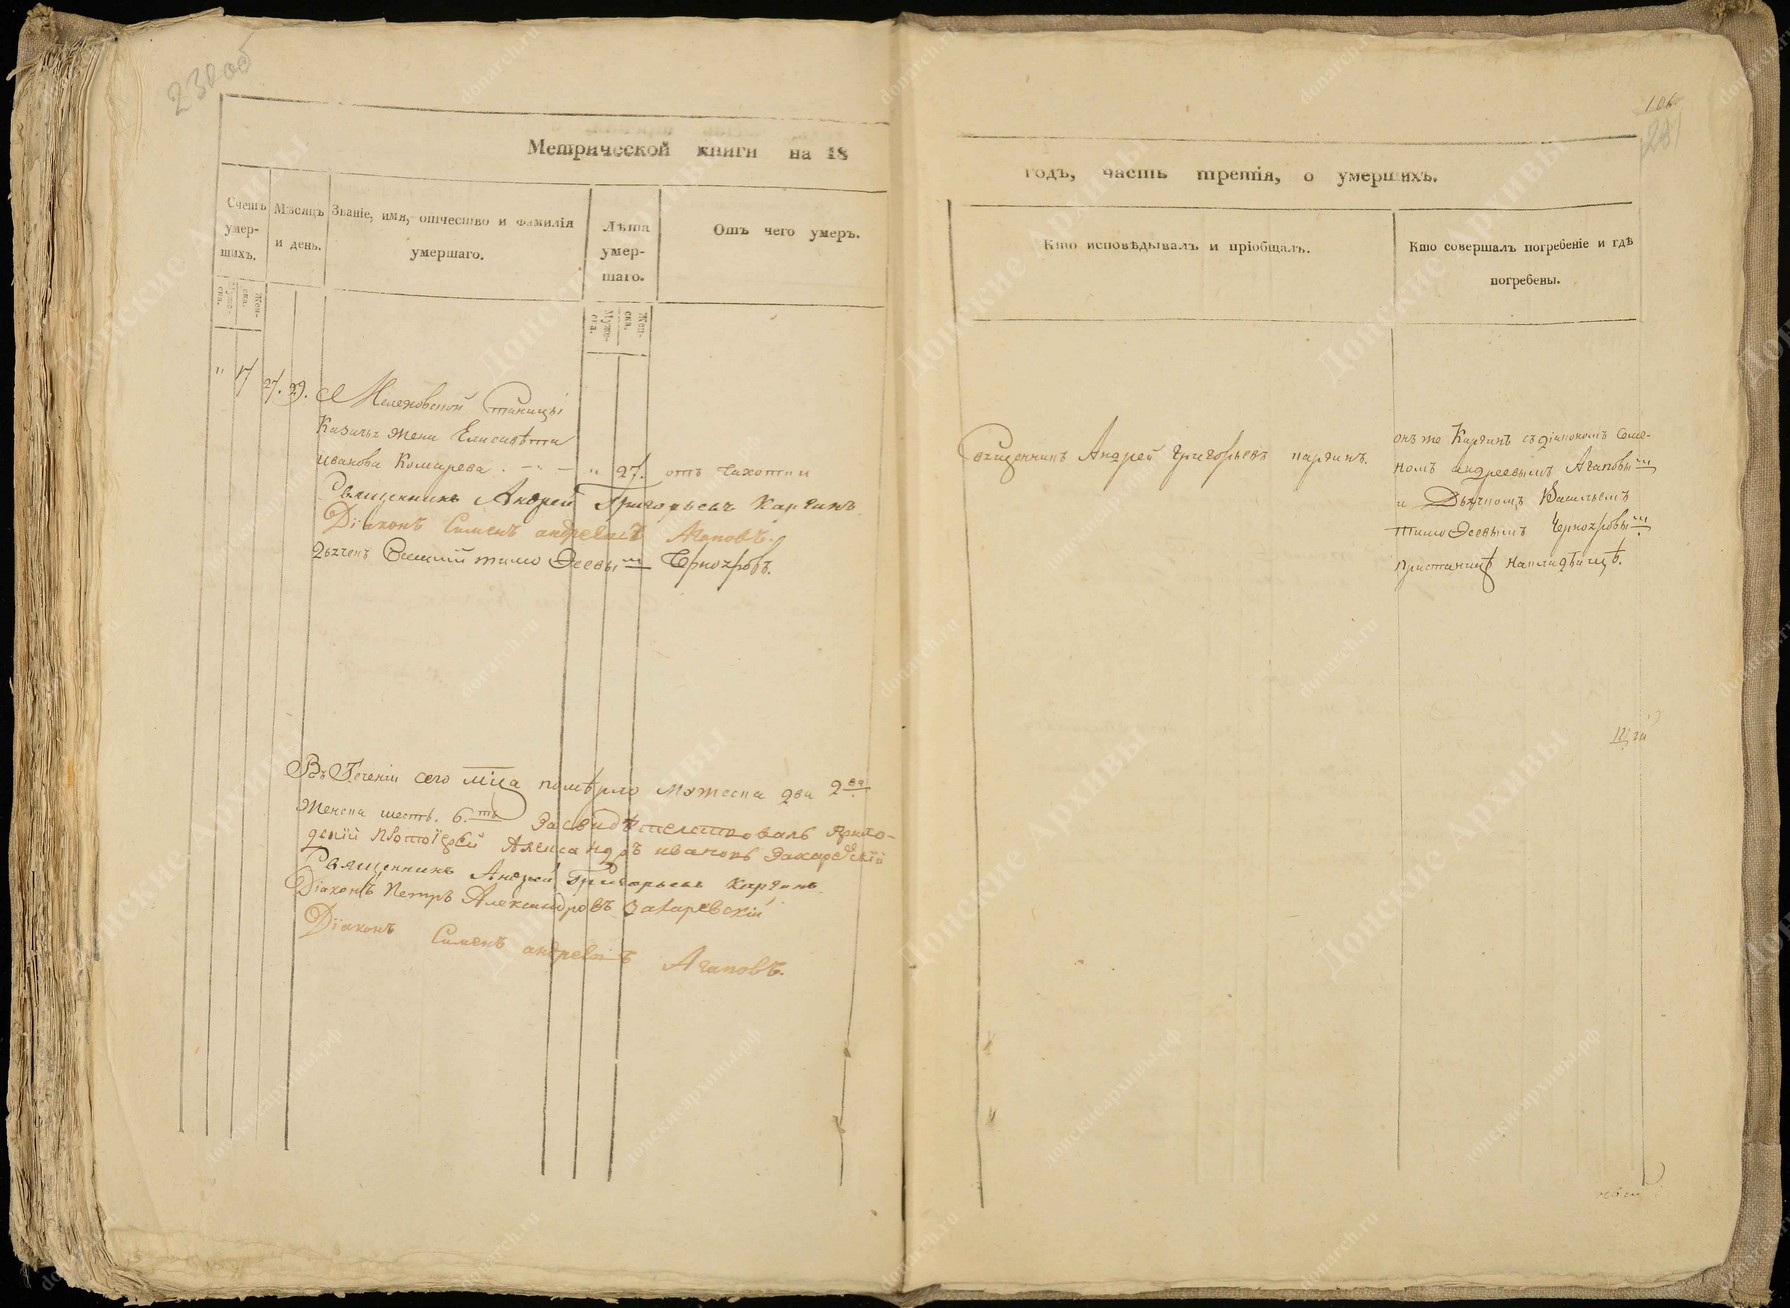 230об
Метрической книги на 18
Счетъ умер-шихъ.
Мѣсяцъ и день.
Званіе, имя, отчество и фамилія умершаго.
Лѣта умер-шаго.
Отъ чего умеръ.
Муже-ска.
Жен-ска.
Муже-ска.
Жен-ска.
" 17 27. 29. Мелеховской Станицы
Казачья жена Елисавѣта
иванова Комарева . - - - " 27. отъ Чахотки
Священникъ Андрей Григорьевъ Каргинъ
Діаконъ Сименъ андреевъ Агаповъ.
Дьячекъ Василій тимоѳеевъ
Въ Теченіи сего мца помѣрло мужеска два 2ва
Женска шесть. 6.ть Засвидѣтелствовалъ
Протоіерей Александръ ивановъ Захаревскій
Священникъ Андрей Григорьевъ Каргинъ
Діаконъ Петръ Александровъ Захаревскій
Діаконъ Сименъ андреевъ Агаповъ.
106
231
годъ, часть третія, о умершихъ.
Кто исповѣдывалъ и пріобщалъ.
Кто совершалъ погребеніе и гдѣ погребены.
Священникъ Андрей Григорьевъ каргинъ.
онъ же Каргинъ съ діакономъ Семе-
номъ андреевымъ Агаповымъ
и Дьячкомъ Васильемъ
тимоѳеевымъ